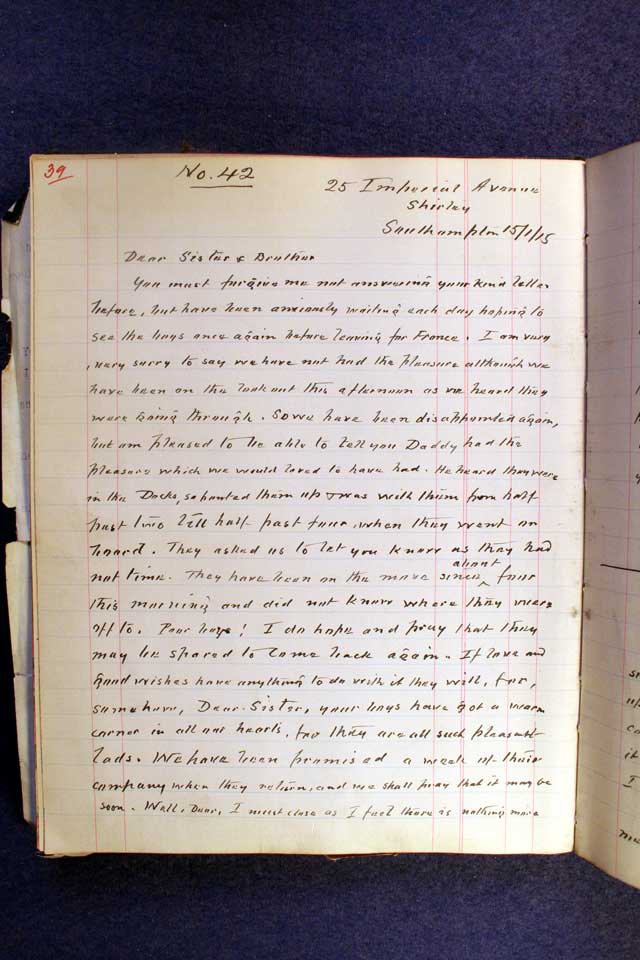 39
No. 42
25 Imperial Avenue
Shirley
Southampton 15/1/15
Dear Sister & Brother
You must forgive me not answering your kind letter
before, but have been anxiously waiting each day hoping to
see the boys once again before leaving for France. I am very
, very sorry to say we have not had the pleasure although we
have been on the look out this afternoon as we heard they
were going through. So we have been disappointed again,
but am pleased to be able to tell you Daddy had the
pleasure which we would loved to have had. He heard they were
in the Docks, so hunted them up & was with them from half
past two till half past four, when they went on
board. They asked us to let you know as they had
not time. They have been on the move since about four
this morning and did not know where they were
off to. Poor boys! I do hope and pray that they
may be spared to come back again. If love and
good wishes have anything to do with it they will, for,
somehow, Dear Sister, your boys have got a warm
corner in all our hearts, for they are all such pleasant
lads. We have been promised a week of their
company when they return, and we shall pray that it may be
soon. Well, Dear, I must close as I feel there is nothing more